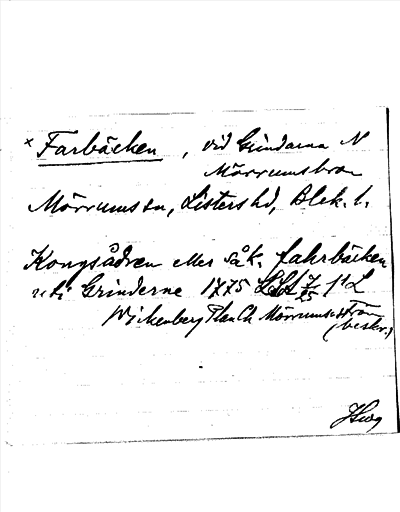 × Farbäcken, vid Grindarna N
Mörrumsbron
Mörrums sn, Listers hd, Blek. l.
Kongsådren eller såk. fahrbäcken
uti Grinderne 1775 LSA 7/25 1:1 L
Wickenberg Plan Ch Mörrumsån från
(beskr.)